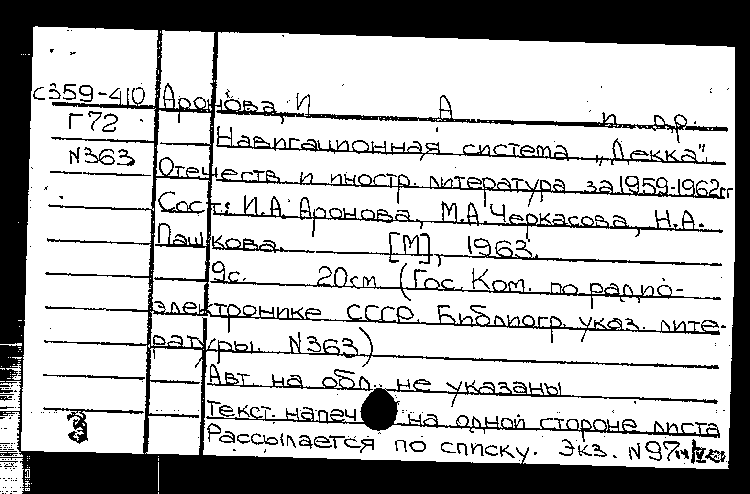 с359-410 Аронова, И А и др.
Г72
Навигационная система „Декка".
N363
Отечеств и иностр. литература за 1959-1962гг
Сост: И.А. Аронова, М.А. Черкасова, Н.А.
Пашкова. [М], 1963.
9с. 20см (Гос. Ком. по радио-
электронике СССР. Библиогр. указ. лите-
ратуры. N363)
Авт. на обл. не указаны
Текст. напеч на одной стороне листа
3
Рассылается по списку. Экз. N97